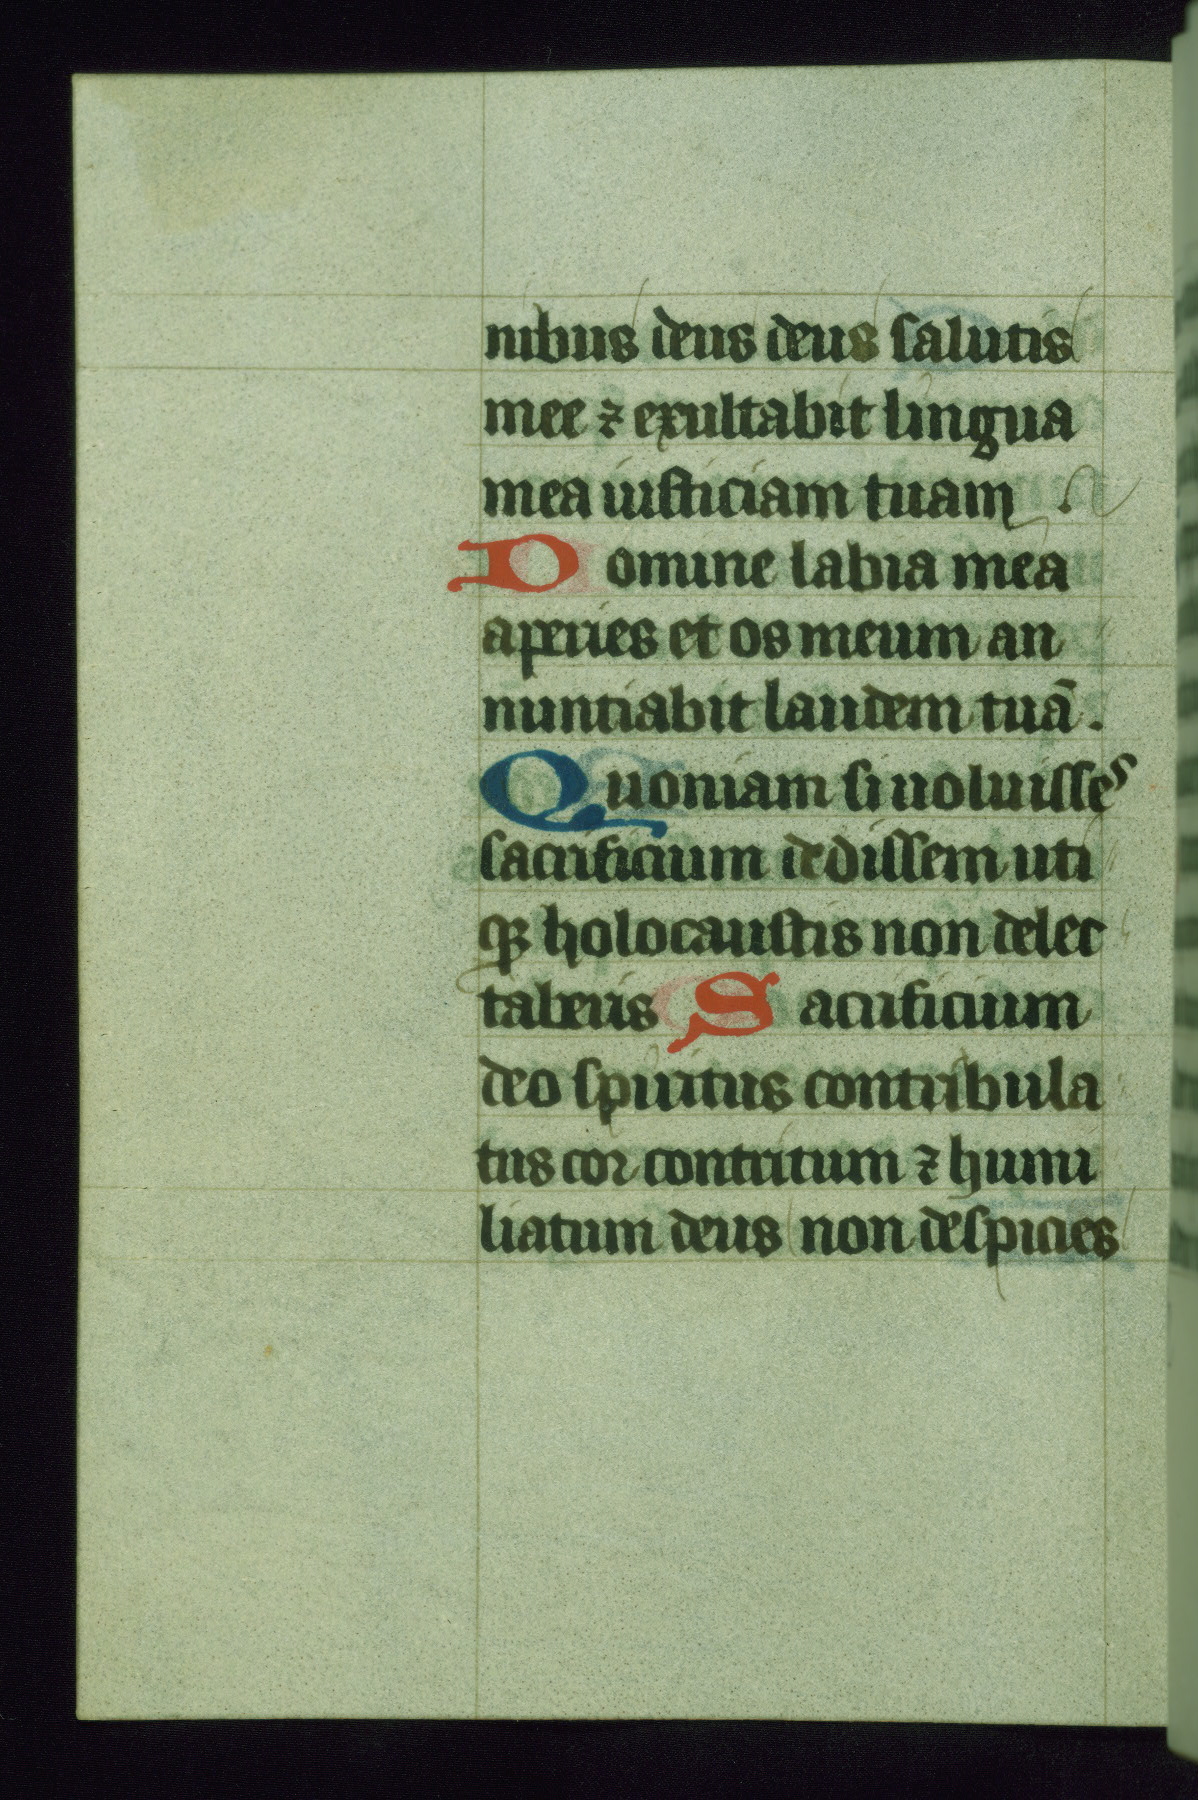 nibus deus deus salutis
mee ⁊ exultabit lingua
mea iusticiam tuam
Domine labia mea
aperies et os meum an
nuntiabit laudem tuā.
Quoniam si uoluisses
sacrificium dedissem uti
qꝫ holocaustis non delec
taberis Sacrificium
deo spiritus contribula
tus cor contritum ⁊ humi
liatum deus non despicies